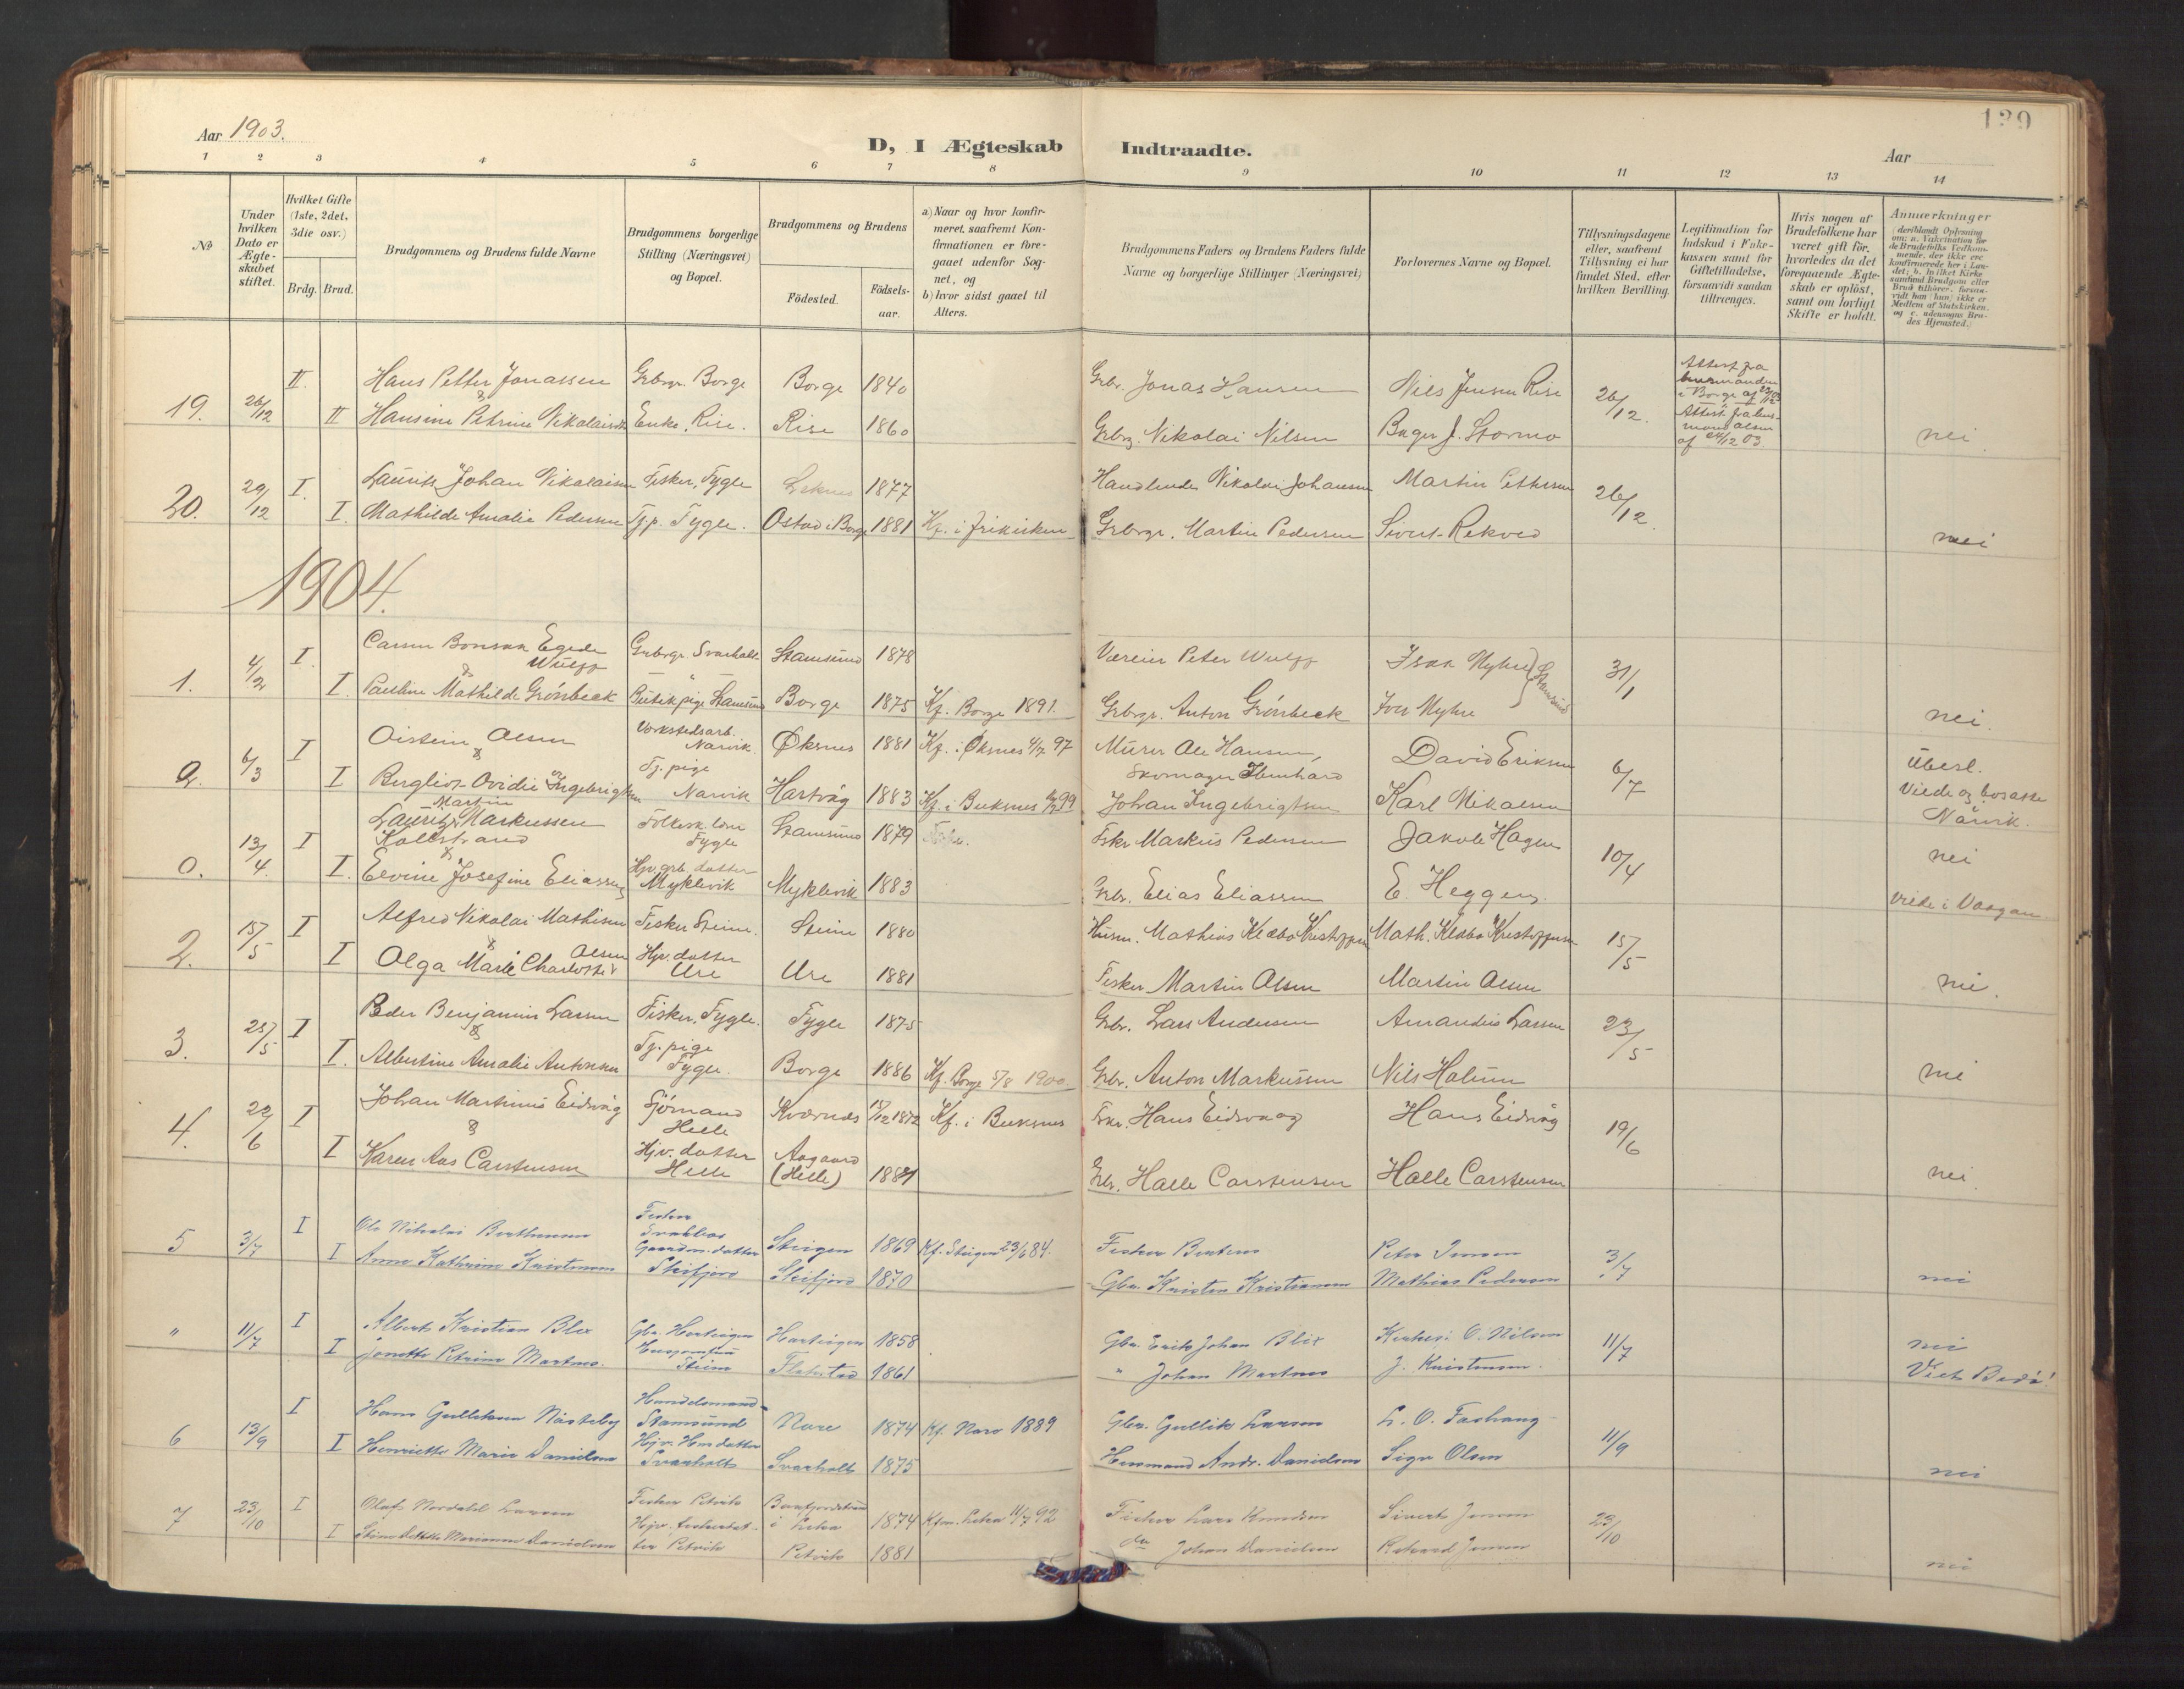 139
Aar 1903.
D, I Ægteskab Indtraadte.
Aar
1 2 3 4 5 6 7 8 9 10 11 12 13 14
No
Under hvilken Dato er Ægteskabet stiftet.
Hvilket Gifte (1ste, 2det, 3die osv.)
Brdg. Brud.
Brudgommens og Brudens fulde Navne
Brudgommens borgerlige Stilling (Næringsvei) og Bopæl.
Brudgommens og Brudens
Födested.
Födsels-aar.
a) Naar og hvor konfirmeret, saafremt Konfirmationen er foregaaet udenfor Sognet, og
b) hvor sidst gaaet til Alters.
Brudgommens Faders og Brudens Faders fulde Navne og borgerlige Stillinger (Næringsvei)
Forlovernes Navne og Bopæl.
Tillysningsdagene eller, saafremt Tillysning ei har fundet Sted, efter hvilken Bevilling.
Legitimation for Indskud i Enkekassen samt for Giftetilladelse, forsaavidt saadan tiltrænges.
Hvis nogen af Brudefolkene har været gift för, hvorledes da det foregaaende Ægteskab er oplöst, samt om lovligt Skifte er holdt.
Anmærkninger
19. 26/12 II Hans Petter Jonassen Grbrgr. Borge Borge 1840 Grbr. Jonas Hansen Nils Jensen Rise 26/12. Attest fra
&
II Hansine Petrine Nikolaisdtr Enke, Rise. Rise 1860 Grbrg. Nikolai Nilsen Bager J. Stormo nei.
20. 29/12 I. Laurits Johan Nikolaisen Fisker, Fygle Leknes 1877 Handlende Nikolai Johansen Martin Pettersen 26/12.
I. Mathilde Amalie Pedersen Tj.p. Fygle. Ostad i Borge 1881 Kf. i Frikirken Grbrgr. Martin Pedersen Sivert Rekved nei
1904.
1. 4/2 I. Egede Wulff Grbrgr. Svarholt Stamsund 1878 Væreier Peter Wulff Isak Myhre 31/1
&
I. Pauline Mathilde Grönbeck Butikpige Stamsund Borge 1875 Kf. Borge 1891. Grbrgr. Anton Grönbeck Iver Myhre Stamsund nei.
2. 6/3 I Oistein Olsen Verkstedsarb. Narvik Øksnes 1881 Kf. i Øksnes 97 Murer Ole Hansen, David Eriksen 6/7
&
I Bergliot Ovidie Ingebrigtsen Tj. pige Narvik Hartvåg 1883 Kf. i Buksnes 99 Skomager Johan Ingebrigtsen Karl Mikalsen Viede og bosatte Narvik.
0. 13/4. I Lauritz Martin Markussen Kolbstrand Folkesk.lærer Fygle Stamsund 1879 Fskr Markus Pedersen Jakob Hagen 10/4 nei
&
I. Elvine Josefine Eliassen Hjv. grb. datter Myklevik Myklevik 1883 Grbr. Elias Eliassen E. Heggen. viede i Vaagan
2. 15/5 I Alfred Nikolai Mathisen Fisker Steine. Steine 1880 Husm. Mathias Klæbo Kristoffersen Math. Klæbo Kristoffersen 15/5
&
I Olga Marie Charlotte Olsen Hjv. datter Ure Ure 1881 Fisker Martin Olsen Martin Olsen nei.
3. 25/5 I Peder Benjamin Larsen Fisker, Fygle. Fygle 1875 Grbr. Lars Andersen Amandus Larsen 23/5
&
I. Albertine Amalie Antonsen Tj. pige Fygle. Borge 1886 Kf. Borge 5/8 1900 Grbr. Anton Markussen Nils Halsen nei
4. 29/6 I Johan Martinus Eidsvåg Sjömand Helle Kværnes 15/12 1872 Kf. i Buksnes Fskr. Hans Eidsvaag Hans Eidsvåg 19/6
&
I Karen Aas Carstensen Hjv. datter Helle Aagaard (Helle) 1881 Grbr. Halle Carstensen Halle Carstensen nei.
5 3/7 I Ole Nikolai Berthensen Fisker Steigen 1869 Kf. Steigen 23/6 84. Fisker Bertens Peter Jensen 3/7
I Anna Kathrine Kristensen Gaardm. datter Skifjord Skifjord 1870 Gbr. Kristen Kristiansen Mathias Pedersen nei
" 11/7 I Albert Kristian Blix Gbr. Hartvigen Hartvigen 1858 Gbr. Erik Johan Blix O. Nilsen 11/7 nei
I Jonette Petrine Martnes. Steine Flakstad 1861 " Johan Martnes J. Kristensen. Viet Bodö!
6 13/9 I Hans Gulliksen Nästeby Handelsmand Stamsund Nore 1874 Kf. Nore 1889 Gbr. Gullik Larsen L. O. 11/9
I Henriette Marie Danielsen Hjv. Hmdatter Svarholt Svarholt 1875 Husmand Andr. Danielsen Sigv Olsen nei
7 23/10 I Olaf Nordahl Larsen Fisker Petvik i Leka 1874 Kfm. Leka 11/7 92 Fisker Lars Knudsen Sivert Jensen 23/10
I Marianne Danielsen Hjv. fiskerdatter Petvik Petvik 1881 do Johan Danielsen Jensen nei